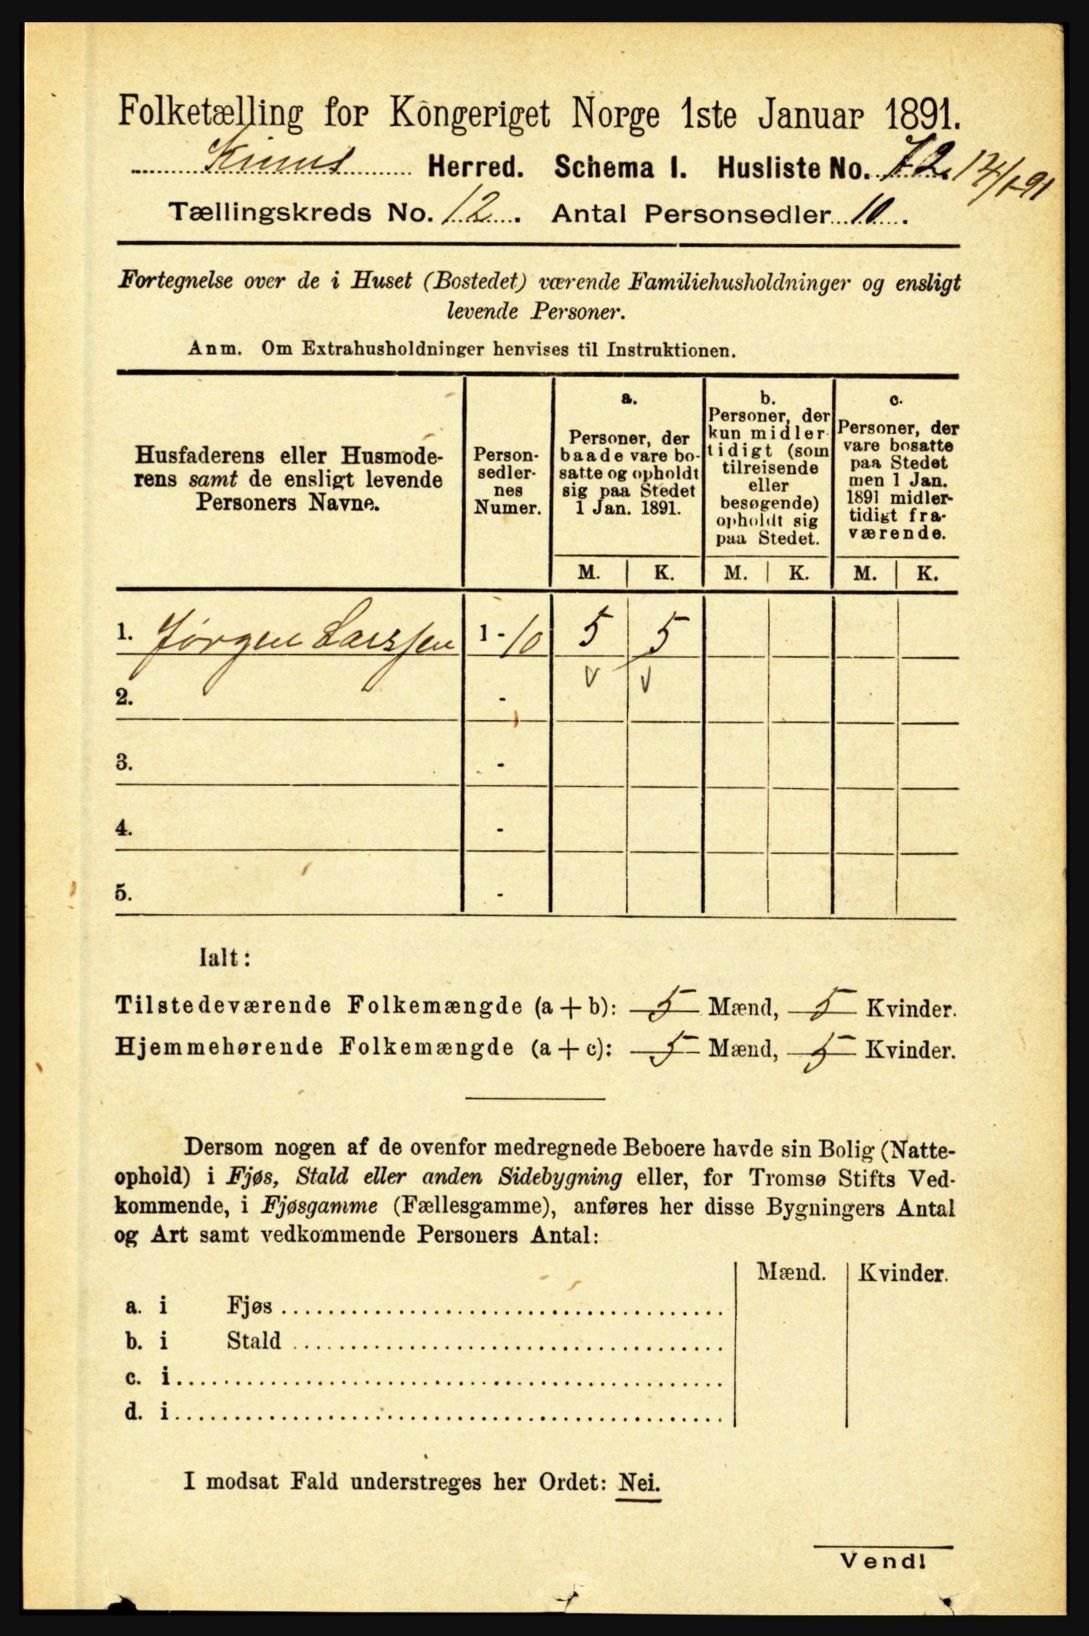 Folketælling for Kongeriget Norge 1ste Januar 1891.
Kinns Herred. Schema I. Husliste No. 72.
Tællingskreds No. 12. Antal Personsedler 10.
Fortegnelse over de i Huset (Bostedet) værende Familiehusholdninger og ensligt
levende Personer.
Anm. Om Extrahusholdninger henvises til Instruktionen.
Husfaderens eller Husmode-
rens samt de ensligt levende
Personers Navne.
Person-
sedler-
nes
Numer.
a.
Personer, der
baade vare bo-
satte og opholdt
sig paa Stedet
1 Jan. 1891.
b.
Personer, der
kun midler-
tidigt (som
tilreisende
eller
besøgende)
opholdt sig
paa Stedet.
c.
Personer, der
vare bosatte
paa Stedet
men 1 Jan.
1891 midler-
tidigt fra-
værende.
M. K. M. K. M. K.
1. Jørgen Larssen 1-10 5 5
2. -
3. -
4. -
5. -
Ialt:
Tilstedeværende Folkemængde (a + b): 5 Mænd, 5 Kvinder.
Hjemmehørende Folkemængde (a + c): 5 Mænd, 5 Kvinder.
Dersom nogen af de ovenfor medregnede Beboere havde sin Bolig (Natte-
ophold) i Fjøs, Stald eller anden Sidebygning eller, for Tromsø Stifts Ved-
kommende, i Fjøsgamme (Fællesgamme), anføres her disse Bygningers Antal
og Art samt vedkommende Personers Antal:
Mænd. Kvinder.
a. i Fjøs
b. i Stald
c. i
d. i
I modsat Fald understreges her Ordet: Nei.
Vend!